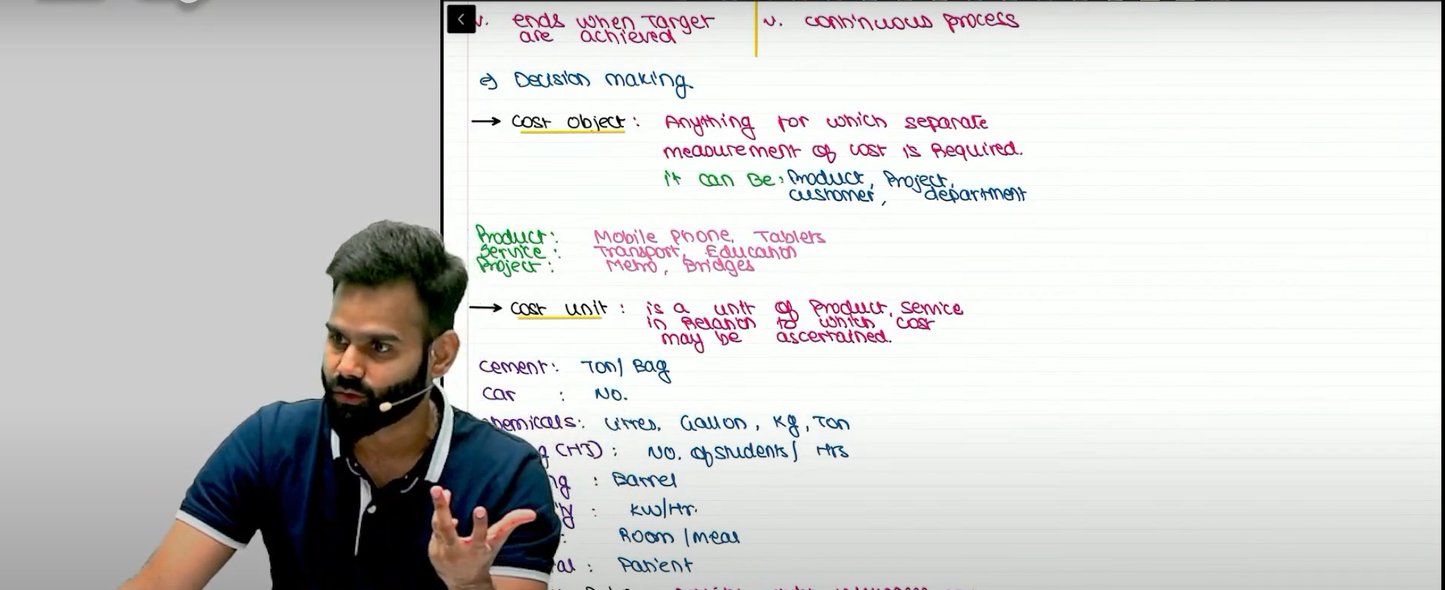 v. ends when Target are achieved
v. continuous process
e) Decision making.
→ Cost Object : Anything for which separate
measurement of cost is Required.
it can Be: Product, Project,
customer, department
Product: Mobile Phone, Tablets
Service: Transport, Education
Project: Metro, Bridges
→ Cost unit : is a unit of Product, service
in Relation to which cost
may be ascertained.
Cement: Ton/ Bag
Car : No.
hemicals: Litres, Gallon, Kg, Ton
g (HJ) : No. of students/ Hrs
ng : Barrel
ty : KW/Hr.
: Room/meal
al : Patient